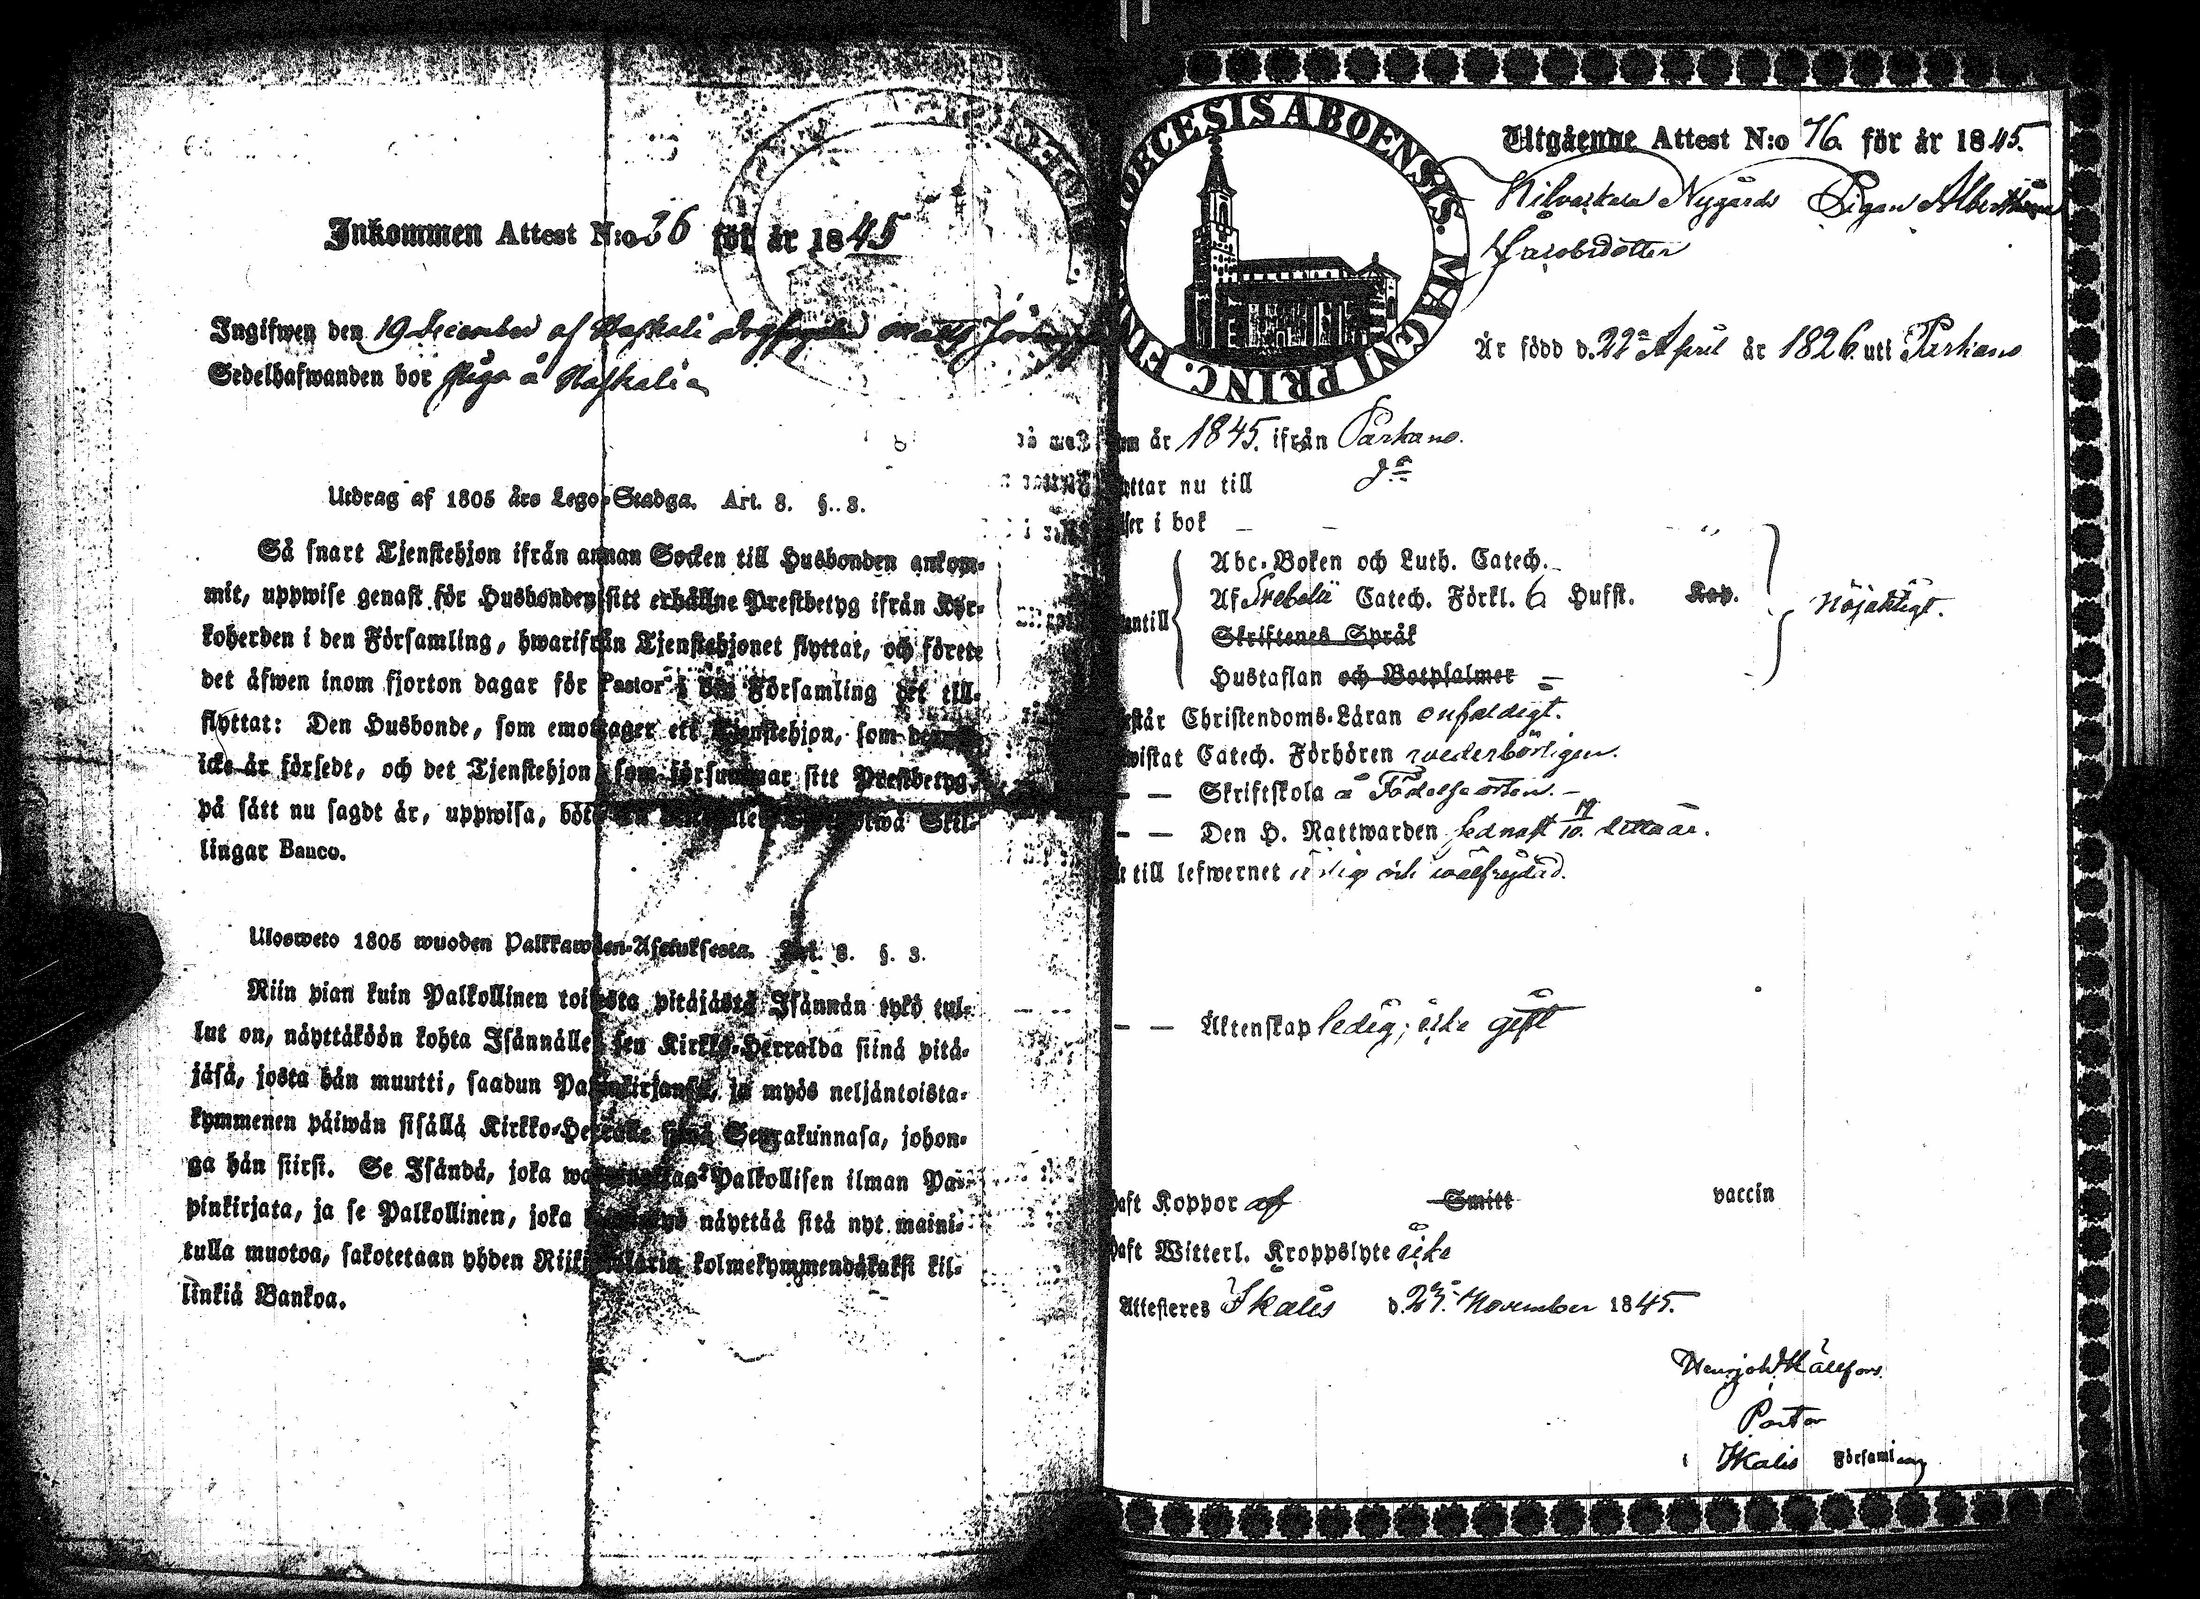 Inkommen Attest N:o 36 för år 1845
Ingifwen den 19 December af Naskali
Sedelhafwanden bor Piga å Naskali
Utdrag af 1805 års Lego-Stadga. Art. 8. §. 3.
Så snart Tjenstehjon ifrån annan Socken till Husbonden ankom-
mit, uppwise genast för Husbonden sitt erhållne Prestbetyg ifrån Kyr-
koherden i den Församling, hwarifrån Tjenstehjonet flyttat, och förete
det äfwen inom fjorton dagar för Pastor i den Församling det till-
flyttat: Den Husbonde, som emottager ett Tjenstehjon, som
icke är försedt, och det Tjenstehjon som försummar sitt Prestbetyg,
på sätt nu sagdt är, uppwisa, böte Skil-
lingar Banco.
Ulosweto 1805 wuoden Palkkawäen-Asetuksesta. Art. 8. §. 3.
Niin pian kuin Palkollinen toisesta pitäjästä Isännän tykö tul-
lut on, näyttäköön kohta Isännälle sen Kirkko-Herralda siinä pitä-
jäsä, josta hän muutti, saadun Papinkirjansa, ja myös neljäntoista-
kymmenen päiwän sisällä Kirkko-Herralle siinä Seurakunnasa, johon-
ga hän siirsi. Se Isändä, joka Palkollisen ilman Pa-
pinkirjata, ja se Palkollinen, joka näyttää sitä nyt maini-
tulla muotoa, sakotetaan yhden Riikintalarin kolmekymmendäkaksi kil-
linkiä Bankoa.
DIOECESIS ABOENSIS. MAGNI PRINC. FIN
Utgående Attest N:o 76 för år 1845.
Kilvakkala Nygårds Pigan Albertina
Jacobsdotter
Är född d. 22 April år 1826. uti Parkano
om år 1845. ifrån Parkano.
yttar nu till
ser i bok
Abc-Boken och Luth. Catech.
Af Svebelii Catech. Förkl. 6 Hufst. Kap. nöjaktigt.
antill
Skriftenes Språk
Hustaflan och Botpsalmer
står Christendoms-Läran enfaldigt.
wistat Catech. Förhören wederbörligen.
— — Skriftskola å Födelseorten.
— — Den H. Nattwarden sednast 19/10. detta år.
till lefwernet och wälfrejdad.
— — Äktenskap ledig; icke gift
haft Koppor af Smitt vaccin
haft Witterl. Kroppslyte icke
Attesteres Ikalis d. 27. November 1845.
Källfors
Pastor
i Ikalis Församling